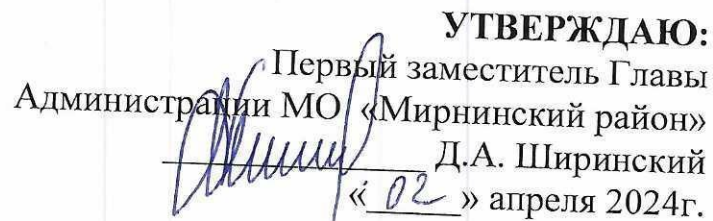 УТВЕРЖДАЮ:
Первый заместитель Главы
Администрации МО «Мирнинский район»
____________ Д.А. Ширинский
«02» апреля 2024г.